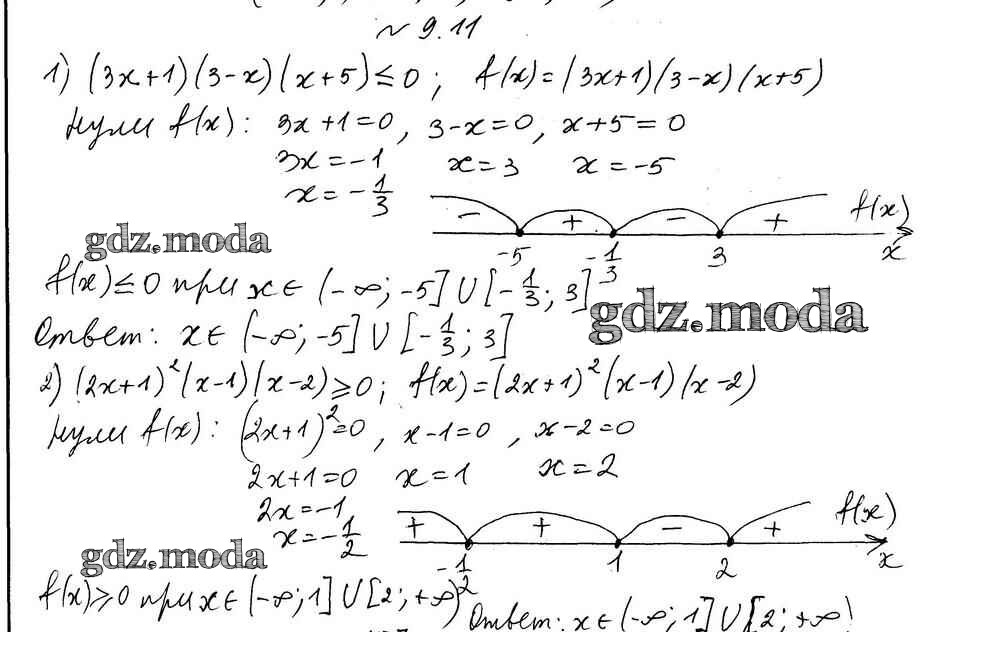 № 9.11
1) (3x+1)(3-x)(x+5)≤0; f(x)=(3x+1)(3-x)(x+5)
Нули f(x): 3x+1=0, 3-x=0, x+5=0
3x=-1 x=3 x=-5
x=-1/3
- + - + f(x)
-5 -1/3 3 x
gdz.moda
f(x)≤0 при x∈(-∞;-5]∪[-1/3;3]
gdz.moda
Ответ: x∈(-∞;-5]∪[-1/3;3]
2) (2x+1)²(x-1)(x-2)≥0; f(x)=(2x+1)²(x-1)(x-2)
Нули f(x): (2x+1)²=0, x-1=0, x-2=0
2x+1=0 x=1 x=2
2x=-1
x=-1/2
+ + - + f(x)
-1/2 1 2 x
gdz.moda
f(x)≥0 при x∈(-∞;1]∪[2;+∞)
Ответ: x∈(-∞;1]∪[2;+∞)